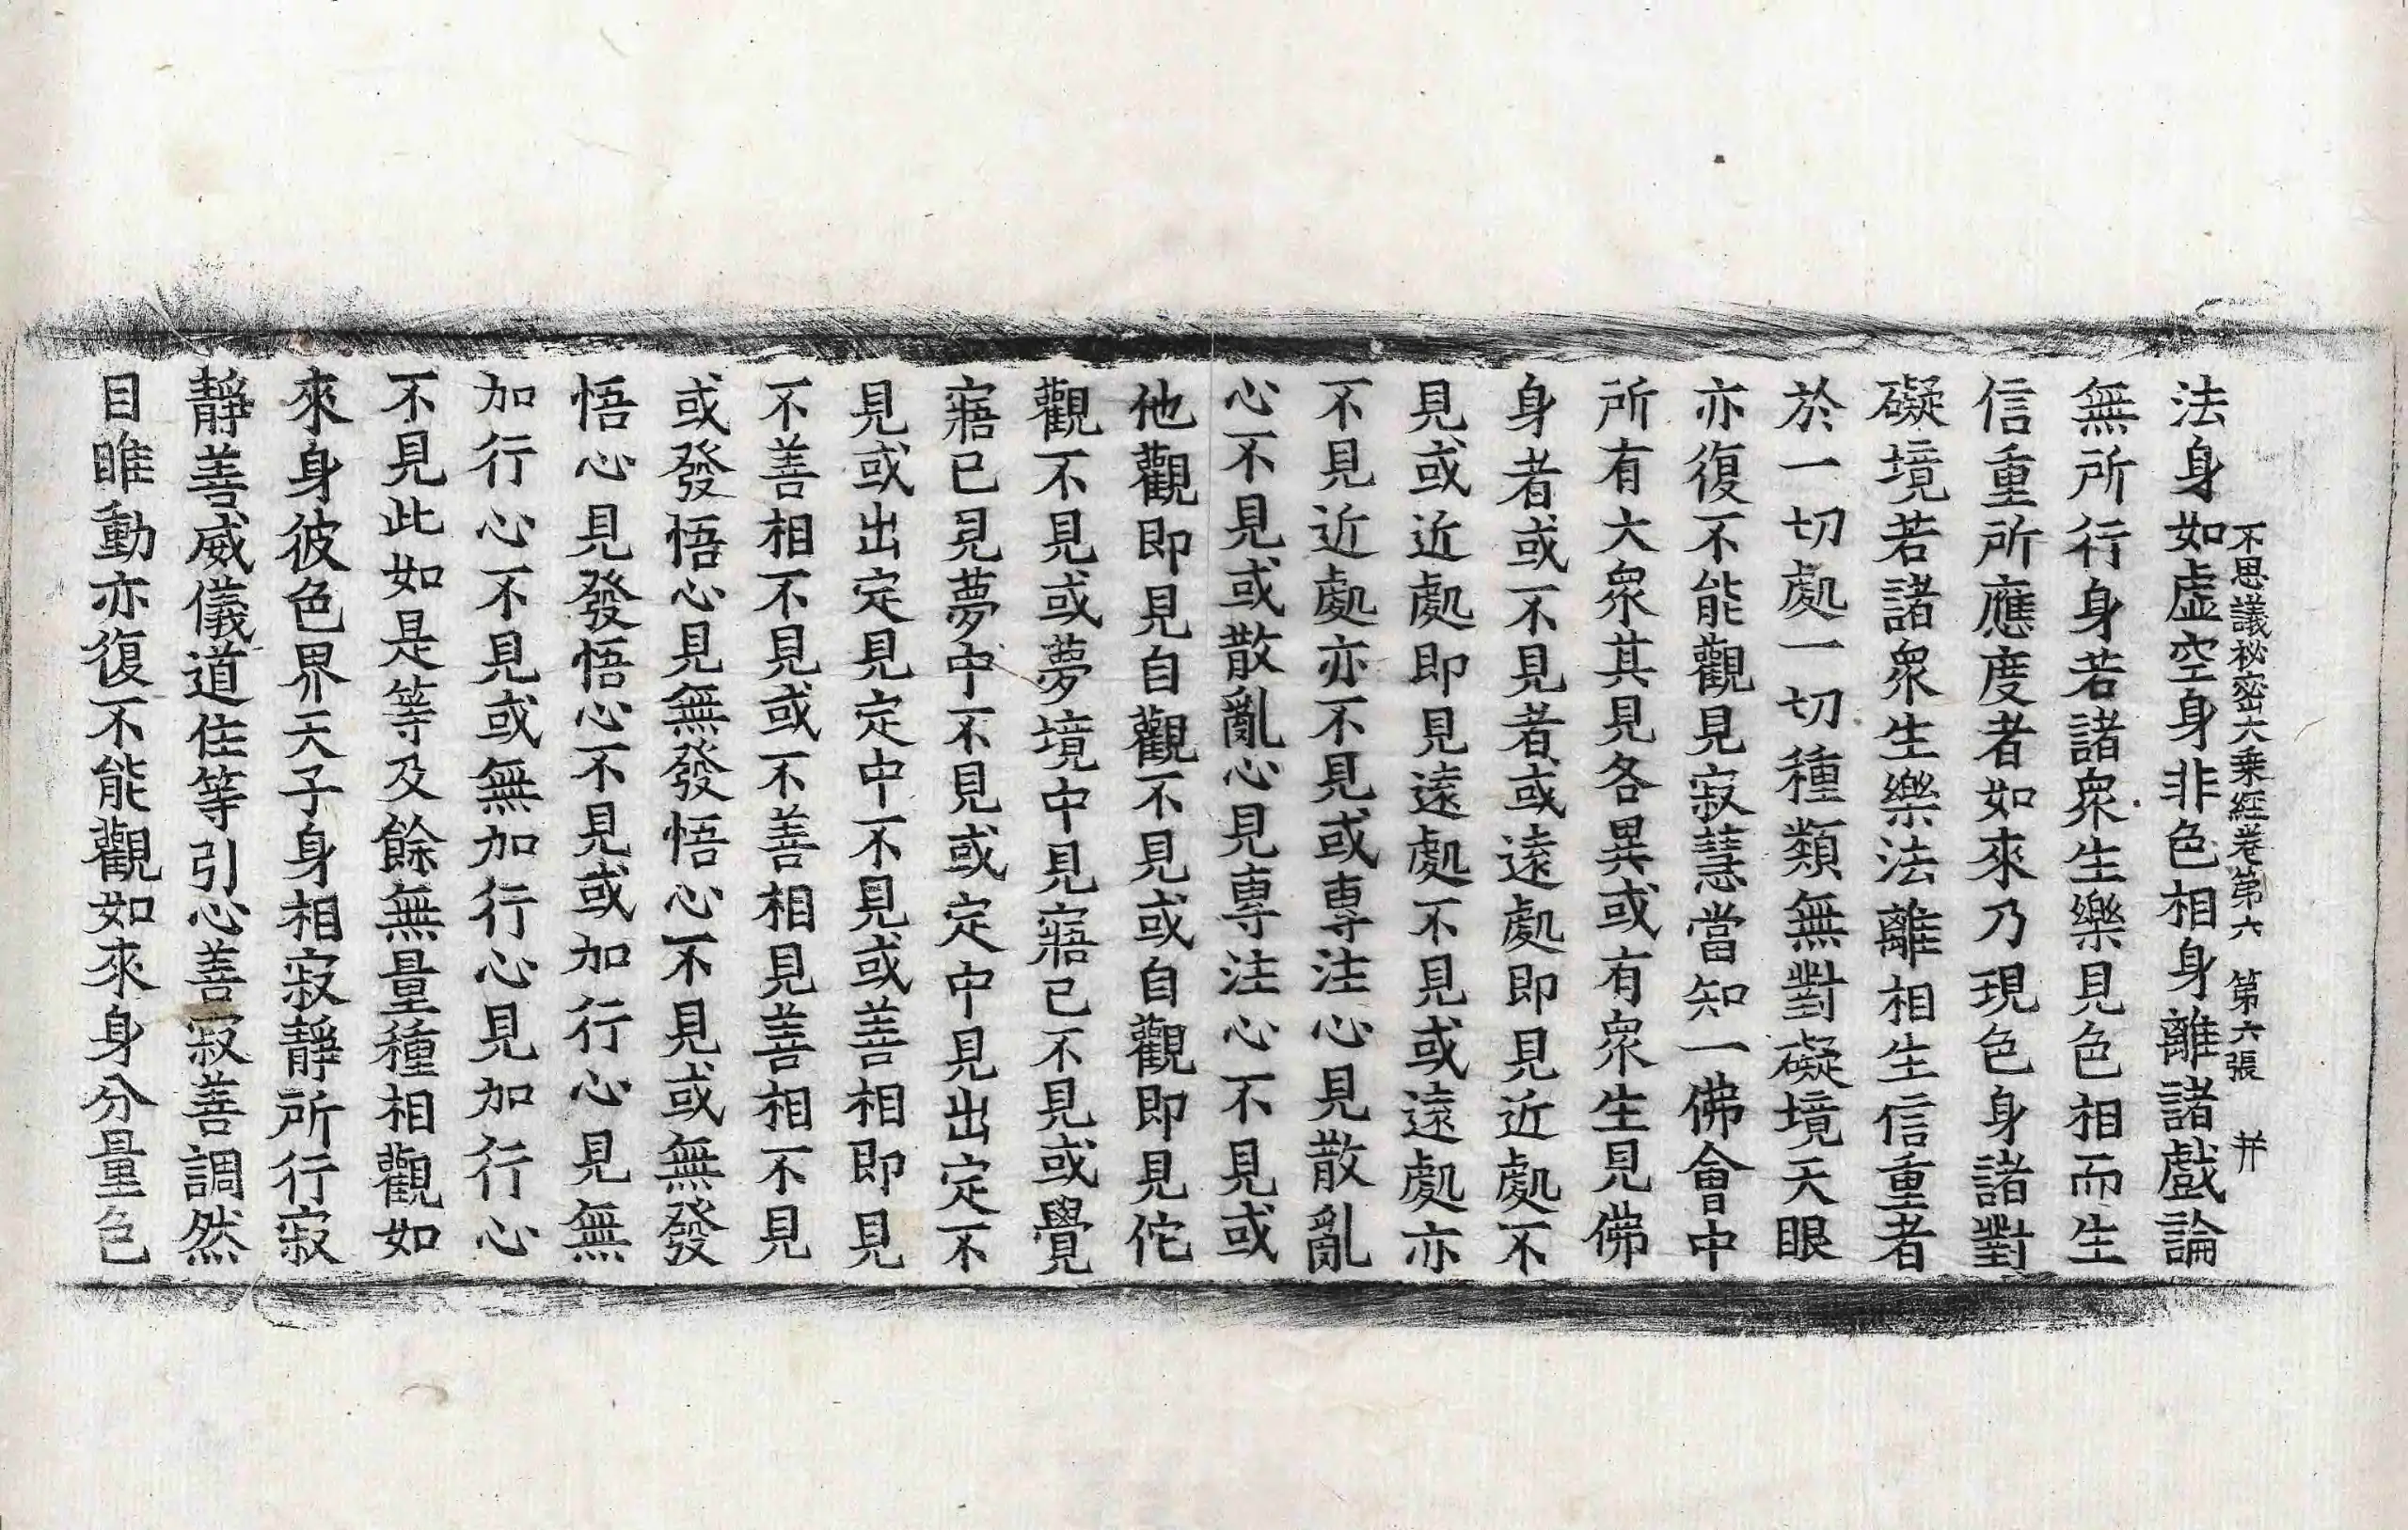 不思議祕密大乗経卷第六 第六張 并
法身如虛空身非色相身離諸戲論
無所行身若諸衆生樂見色相而生
信重所應度者如來乃現色身諸對
礙境若諸衆生樂法離相生信重者
於一切處一切種類無對礙境天眼
亦復不能觀見寂慧當知一佛會中
所有大衆其見各異或有衆生見佛
身者或不見者或遠處即見近處不
見或近處即見遠處不見或遠處亦
不見近處亦不見或專注心見散亂
心不見或散亂心見專注心不見或
他觀即見自觀不見或自觀即見佗
觀不見或夢境中見寤已不見或覺
寤已見夢中不見或定中見出定不
見或出定見定中不見或善相即見
不善相不見或不善相見善相不見
或發悟心見無發悟心不見或無發
悟心見發悟心不見或加行心見無
加行心不見或無加行心見加行心
不見此如是等及餘無量種相觀如
來身彼色界天子身相寂靜所行寂
靜善威儀道住等引心善寂善調然
目睢動亦復不能觀如來身分量色